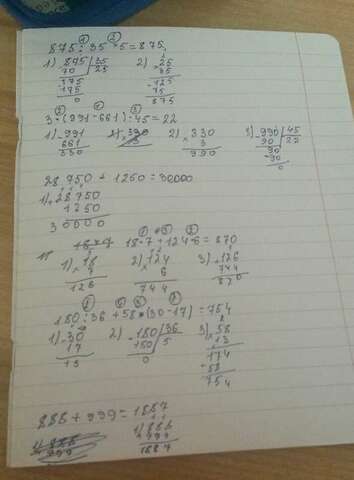 ① ②
875 : 35 · 5 = 875
1) 875 | 35 2) × 25
70 | 25 35
175 125
175 75
0 875
② ① ③
3 · (991 - 661) : 45 = 22
1) - 991 2) 330 3) - 990 | 45
661 × 3 90 | 22
330 990 90
- 90
0
28 750 + 1250 = 30000
1) + 28750
1250
30000
① ③ ②
18 · 7 + 124 · 6 = 870
1) × 18 2) × 124 3) + 126
7 6 744
126 744 870
② ④ ③ ①
180 : 36 + 58 · (30 - 17) = 754
1) - 30 2) - 180 | 36 3) × 58
17 180 | 5 13
13 0 174
58
754
888 + 999 = 1887
1) 888
+ 999
1887